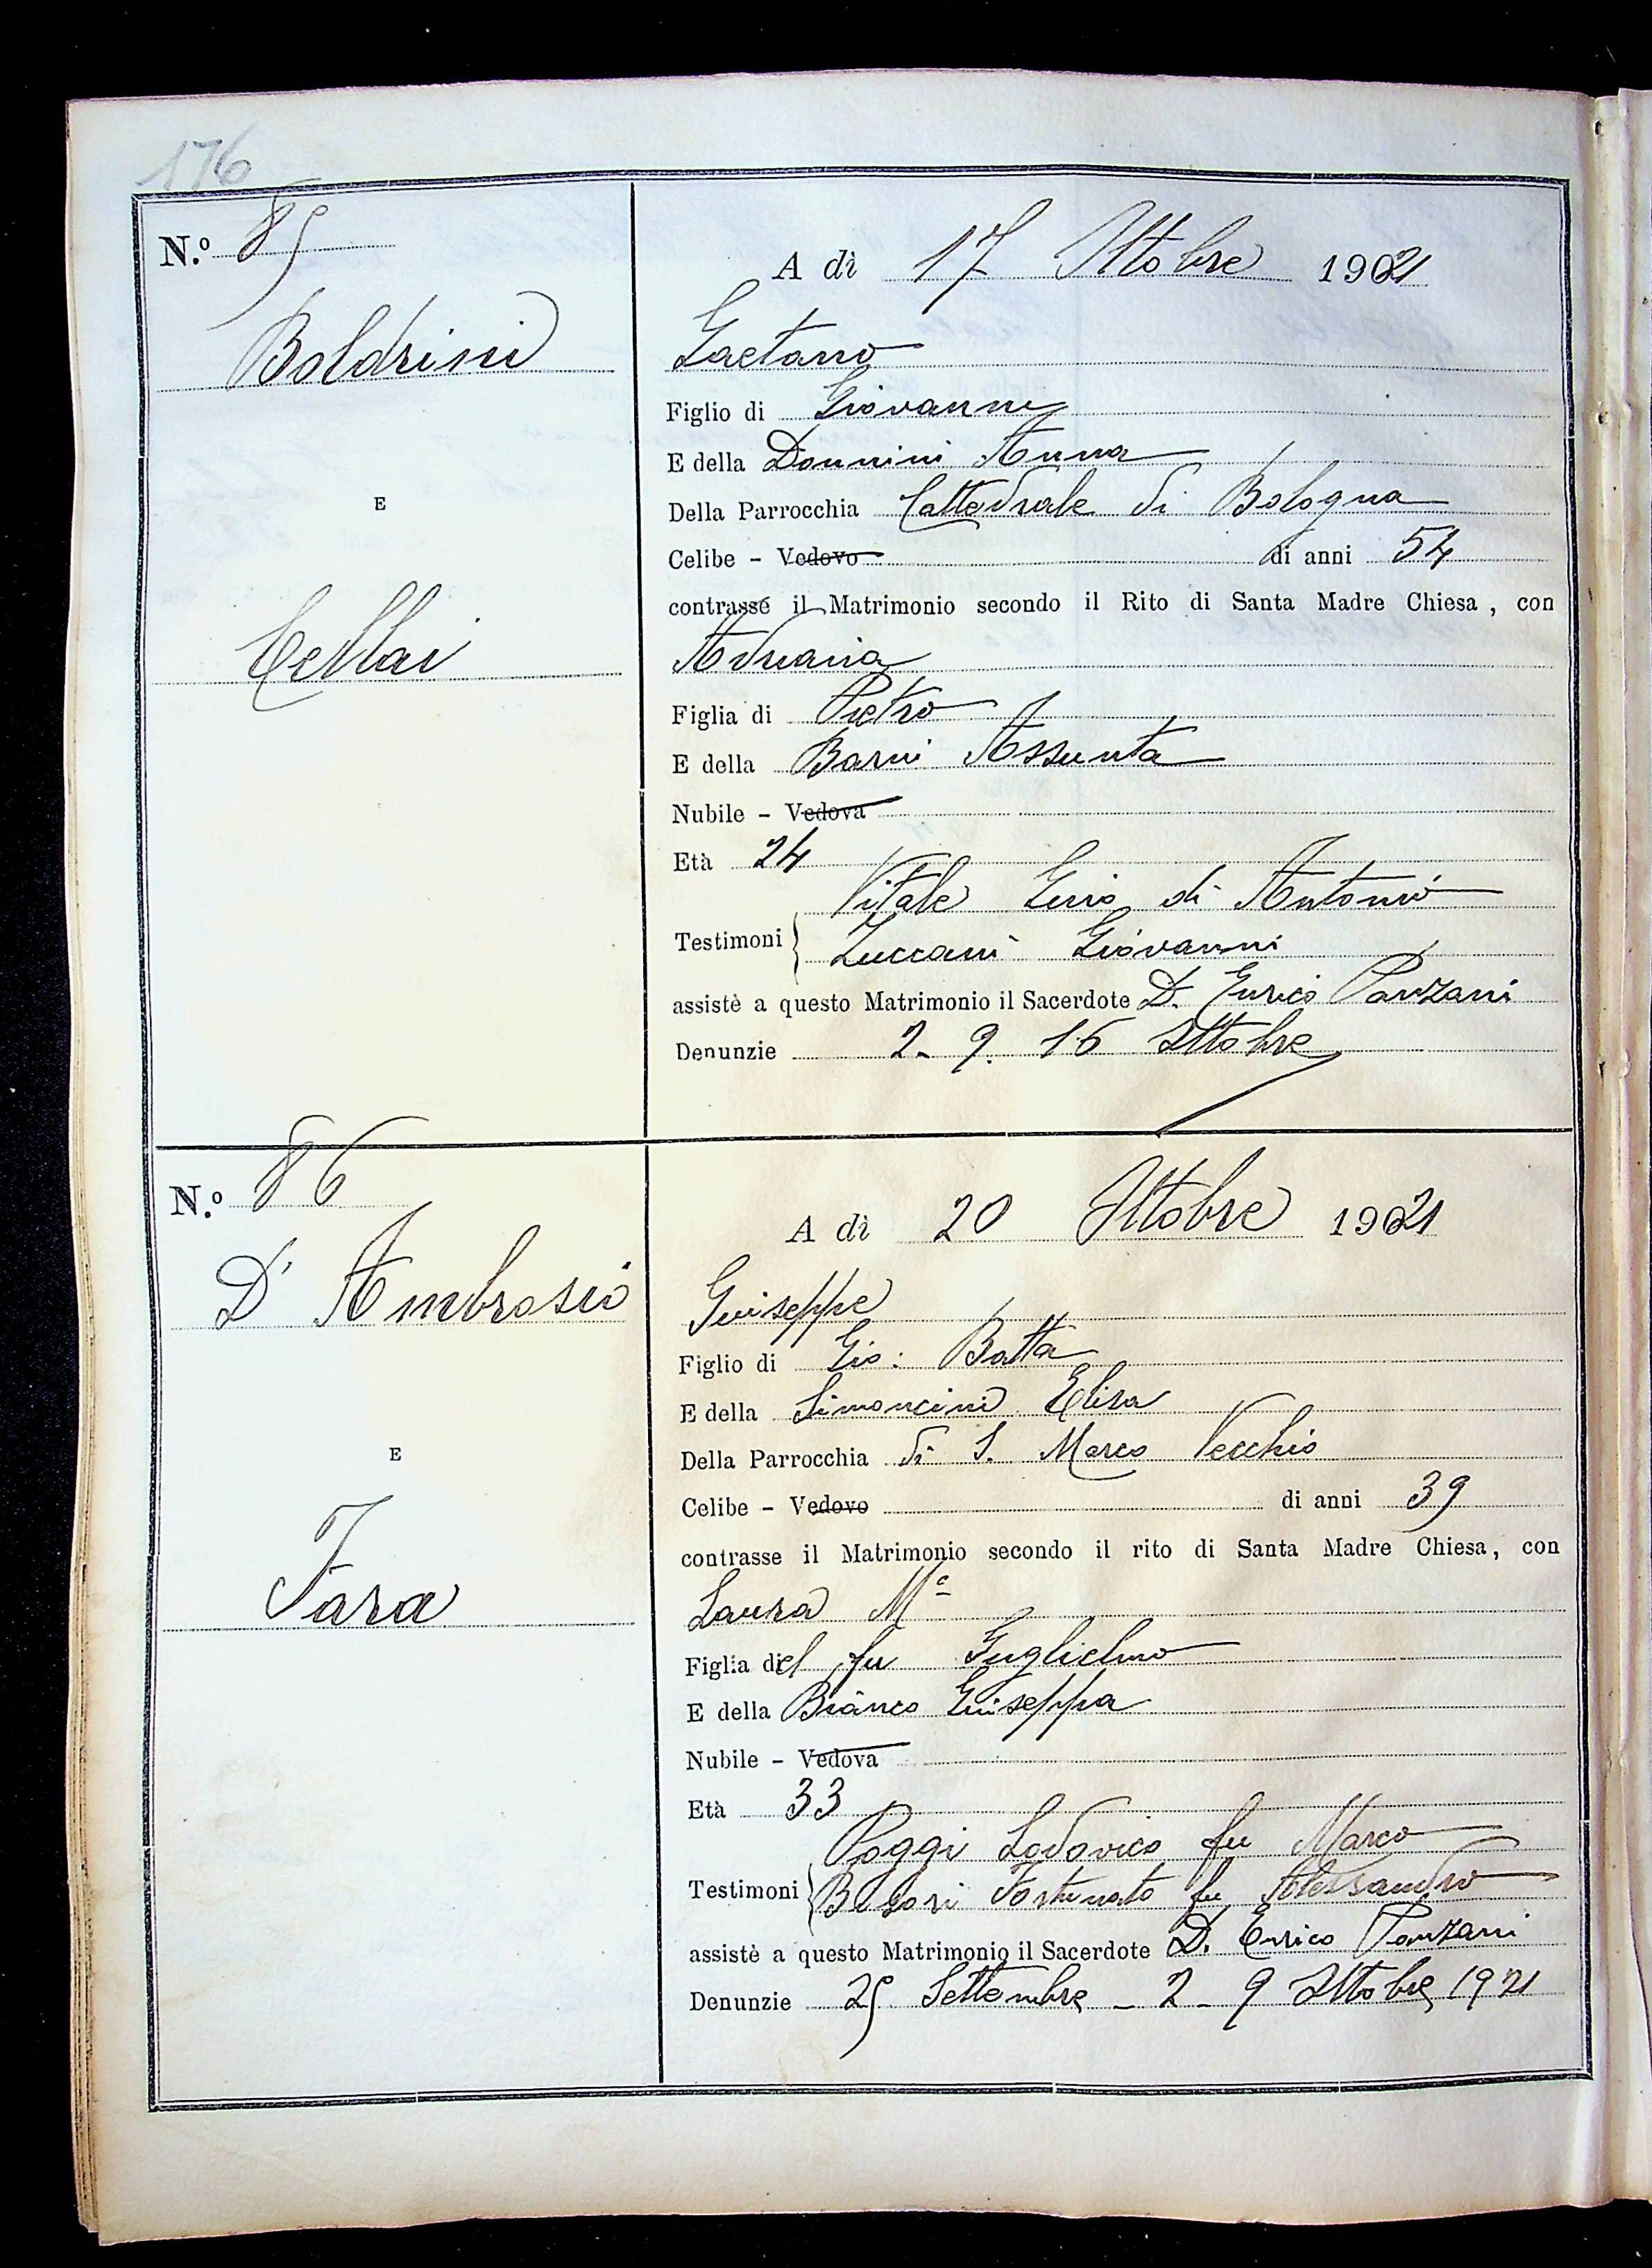 176
N.º 85
A dì 17 Ottobre 1921
Boldrini
Gaetano
Figlio di Giovanni
E della Donnini Anna
E
Della Parrocchia Cattedrale di Bologna
Celibe - Vedovo di anni 54
contrasse il Matrimonio secondo il Rito di Santa Madre Chiesa, con
Cellai
Adriana
Figlia di Pietro
E della Barni Assunta
Nubile - Vedova
Età 24
Vitale Gino di Antonio
Testimoni Zuccani Giovanni
assistè a questo Matrimonio il Sacerdote D. Enrico Panzani
Denunzie 2. 9. 16 Ottobre
N.º 86
A dì 20 Ottobre 1921
D'Ambrosio
Giuseppe
Figlio di Gio: Batta
E della Simoncini Elisa
E
Della Parrocchia di S. Marco Vecchio
Celibe - Vedovo di anni 39
contrasse il Matrimonio secondo il rito di Santa Madre Chiesa, con
Fara
Laura Mª
Figlia del fu Guglielmo
E della Bianco Giuseppa
Nubile - Vedova
Età 33
Poggi Lodovico fu Marco
Testimoni Fortunato fu Alessandro
assistè a questo Matrimonio il Sacerdote D. Enrico Panzani
Denunzie 25 Settembre - 2 - 9 Ottobre 1921